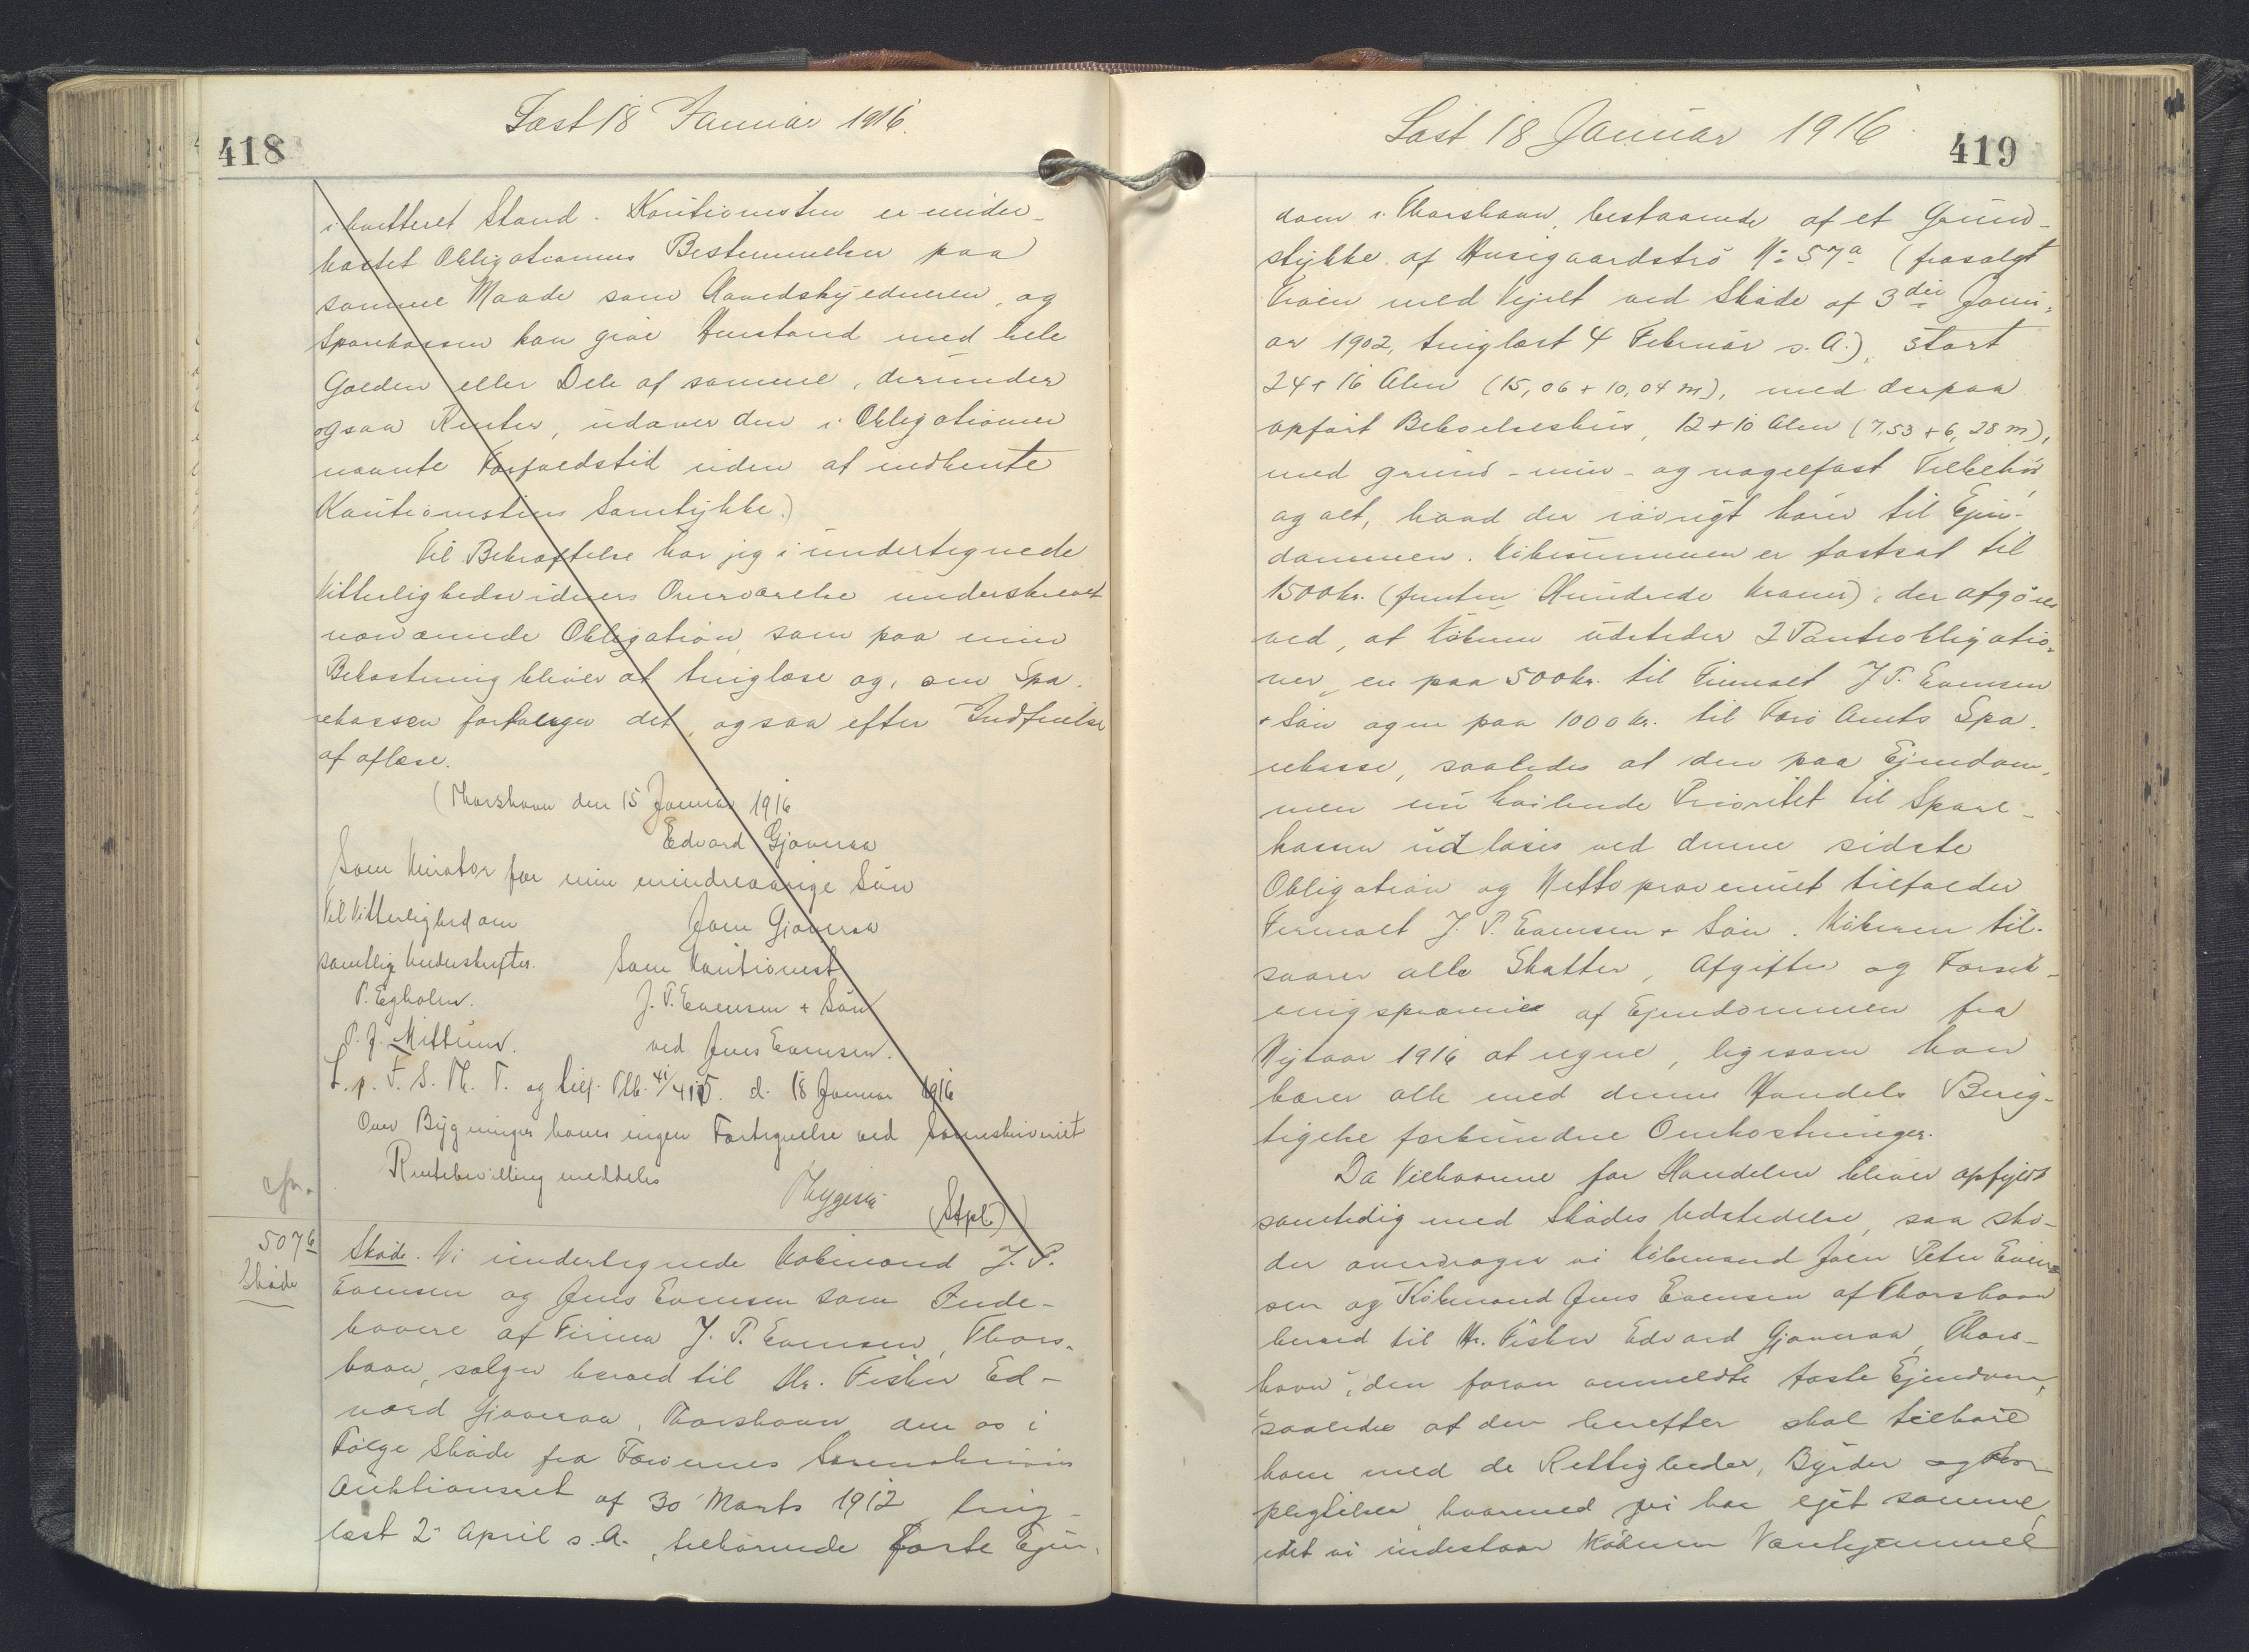 418
Læst 18 Januar 1916.
i kvitteret Stand. Kautionisten er under-
kastet Obligationens Bestemmelser paa
samme Maade som Hovedskyldneren, og
Sparekassen kan give Henstand med hele
Gælden eller Dele af samme, derunder
ogsaa Renter, udover den i Obligationen
nævnte Forfaldstid uden at indhente
Kautionistens Samtykke.)
Til Bekræftelse har jeg i undertegnede
Vitterlighedsvidners Overværelse underskrevet
nærværende Obligation, som paa min
Bekostning bliver at tinglæse og, om Spa-
rekassen forlanger det, ogsaa efter Indfrielse
at aflæse.
(Thorshavn den 15 Januar 1916
Edvard Gjøveraa
Som Kurator for min mindreaarige Søn
Til Vitterlighed om
Joen Gjøveraa
samtlige Underskrifter.
Som Kautionist
P. Egholm.
J. P. Evensen + Søn
P. J. Mittun.
ved Jens Evensen.
L. p. F. S. Th. T. og tilf. Plb. d. 18 Januar 1916
Over Bygninger haves ingen Fortegnelse ved Sorenskriveriet
Rentebevilling meddeles
(Stpl.))
507b
Skøde
Skøde. Vi undertegnede Købmænd J. P.
Evensen og Jens Evensen som Inde-
havere af Firma J. P. Evensen, Thors-
havn, sælger herved til Hr. Fisker Ed-
vard Gjøveraa, Thorshavn den os i
Følge Skøde fra Færøernes Sorenskriveris
Auktionsret af 30 Marts 1912 ting-
læst 2 April s. A., tilhørende faste Ejen-
419
Læst 18 Januar 1916
dom i Thorshavn, bestaaende af et Grund-
stykke af Husigaardstrø No 57a (frasolgt
Trøen med Vejret ved Skøde af 3die Janu-
ar 1902, tinglæst 4 Februar s. A.), stort
24 + 16 Alen (15,06 + 10,04 m), med derpaa
opført Beboelseshus, 12 + 10 Alen (7,53 + 6,28 m),
med grund- mur- og nagelfast Tilbehør
og alt, hvad der iøvrigt hører til Ejen-
dommen. Købesummen er fastsat til
1500 kr. (femten Hundrede Kroner), der afgøres
ved, at Køberen udsteder 2 Panteobligatio-
ner, en paa 500 kr. til Firmaet J P. Evensen
+ Søn og en paa 1000 kr. til Færø Amts Spa-
rekasse, saaledes at den paa Ejendom-
men nu hvilende Prioritet til Spare-
kassen udløses ved denne sidste
Obligation og Nettoprovenuet tilfalder
Firmaet J. P. Evensen + Søn. Køberen til-
svarer alle Skatter, Afgifter og Forsik-
ringspræmier af Ejendommen fra
Nytaar 1916 at regne, ligesom han
bærer alle med denne Handels Berig-
tigelse forbundne Omkostninger.
Da Vilkaarene for Handelen bliver opfyldt
samtidig med Skødes Udstedelse, saa skø-
der overdrager vi Købmand Joen Peter Even-
sen og Købmand Jens Evensen af Thorshavn
herved til Hr. Fisker Edvard Gjøveraa, Thors-
havn, den foran anmeldte faste Ejendom,
saaledes at den herefter skal tilhøre
ham med de Rettigheder, Byrder og For-
pligtelser, hvormed vi har ejet samme,
idet vi indestaar Køberen Vanhjemmel